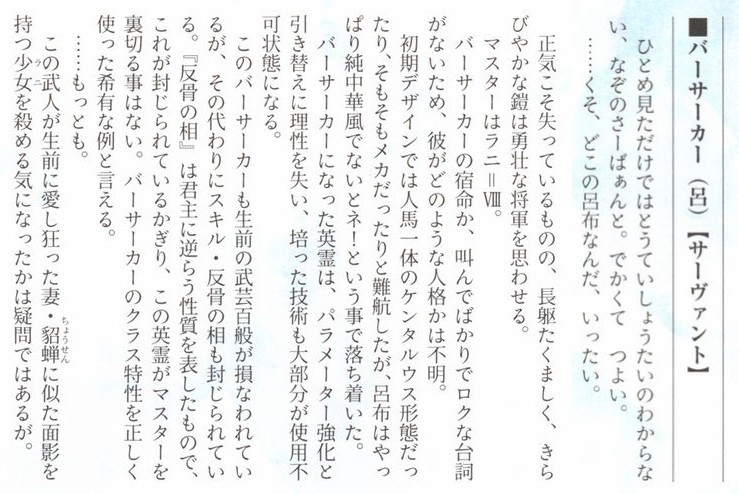 ■バーサーカー（呂）【サーヴァント】
ひとめ見ただけではとうていしょうたいのわからな
い、なぞのさーばぁんと。でかくて　つよい。
……くそ、どこの呂布なんだ、いったい。
正気こそ失っているものの、長躯たくましく、きら
びやかな鎧は勇壮な将軍を思わせる。
マスターはラニ＝Ⅷ。
バーサーカーの宿命か、叫んでばかりでロクな台詞
がないため、彼がどのような人格かは不明。
初期デザインでは人馬一体のケンタルウス形態だっ
たり、そもそもメカだったりと難航したが、呂布はやっ
ぱり純中華風でないとネ！という事で落ち着いた。
バーサーカーになった英霊は、パラメーター強化と
引き替えに理性を失い、培った技術も大部分が使用不
可状態になる。
このバーサーカーも生前の武芸百般が損なわれてい
るが、その代わりにスキル・反骨の相も封じられてい
る。『反骨の相』は君主に逆らう性質を表したもので、
これが封じられているかぎり、この英霊がマスターを
裏切る事はない。バーサーカーのクラス特性を正しく
使った希有な例と言える。
……もっとも。
この武人が生前に愛し狂った妻・貂蝉ちょうせんに似た面影を
持つ少女ラニを殺める気になったかは疑問ではあるが。